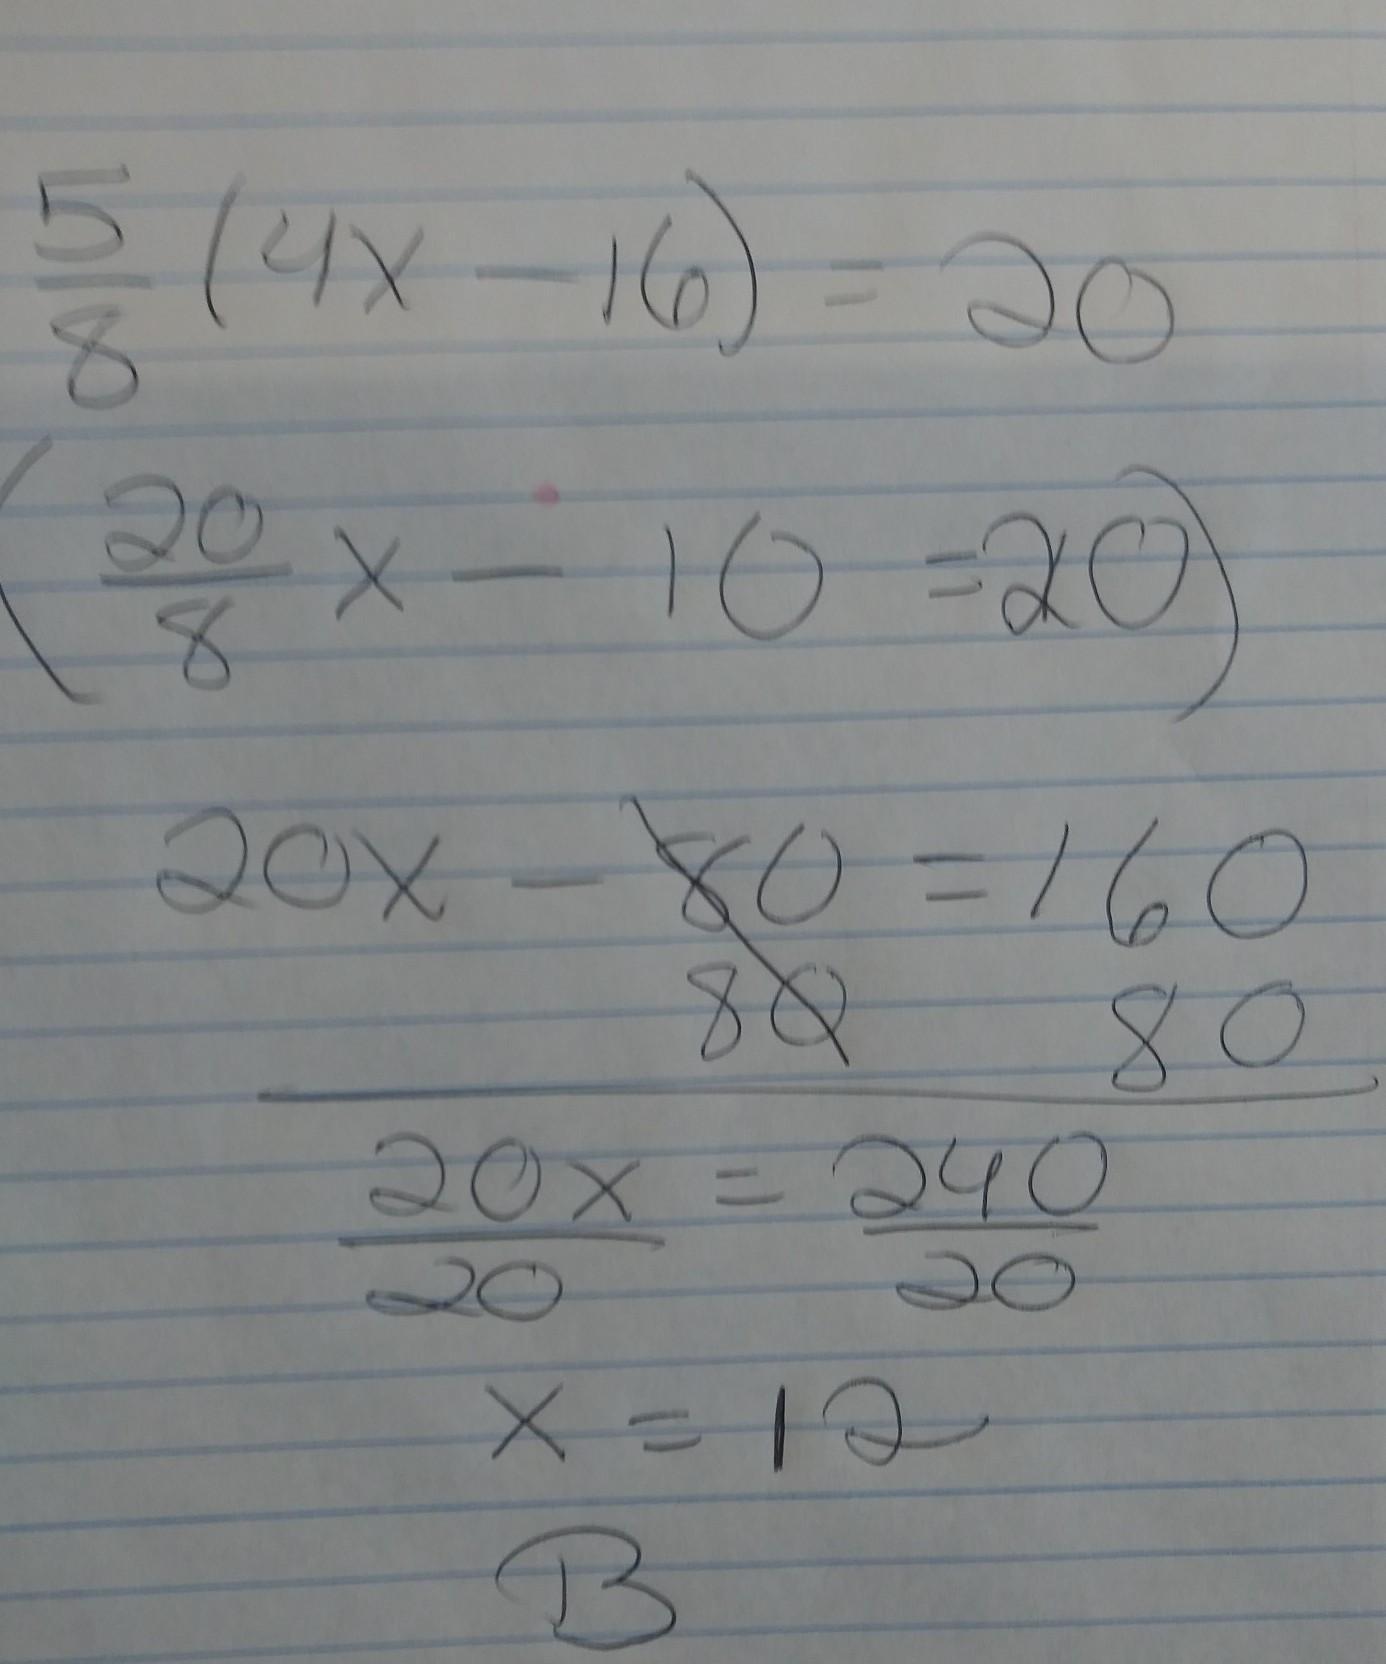 5/8 (4x - 16) = 20
(20/8 x - 10 = 20)
20x - 80 = 160
80 80
20x/20 = 240/20
x = 12
B